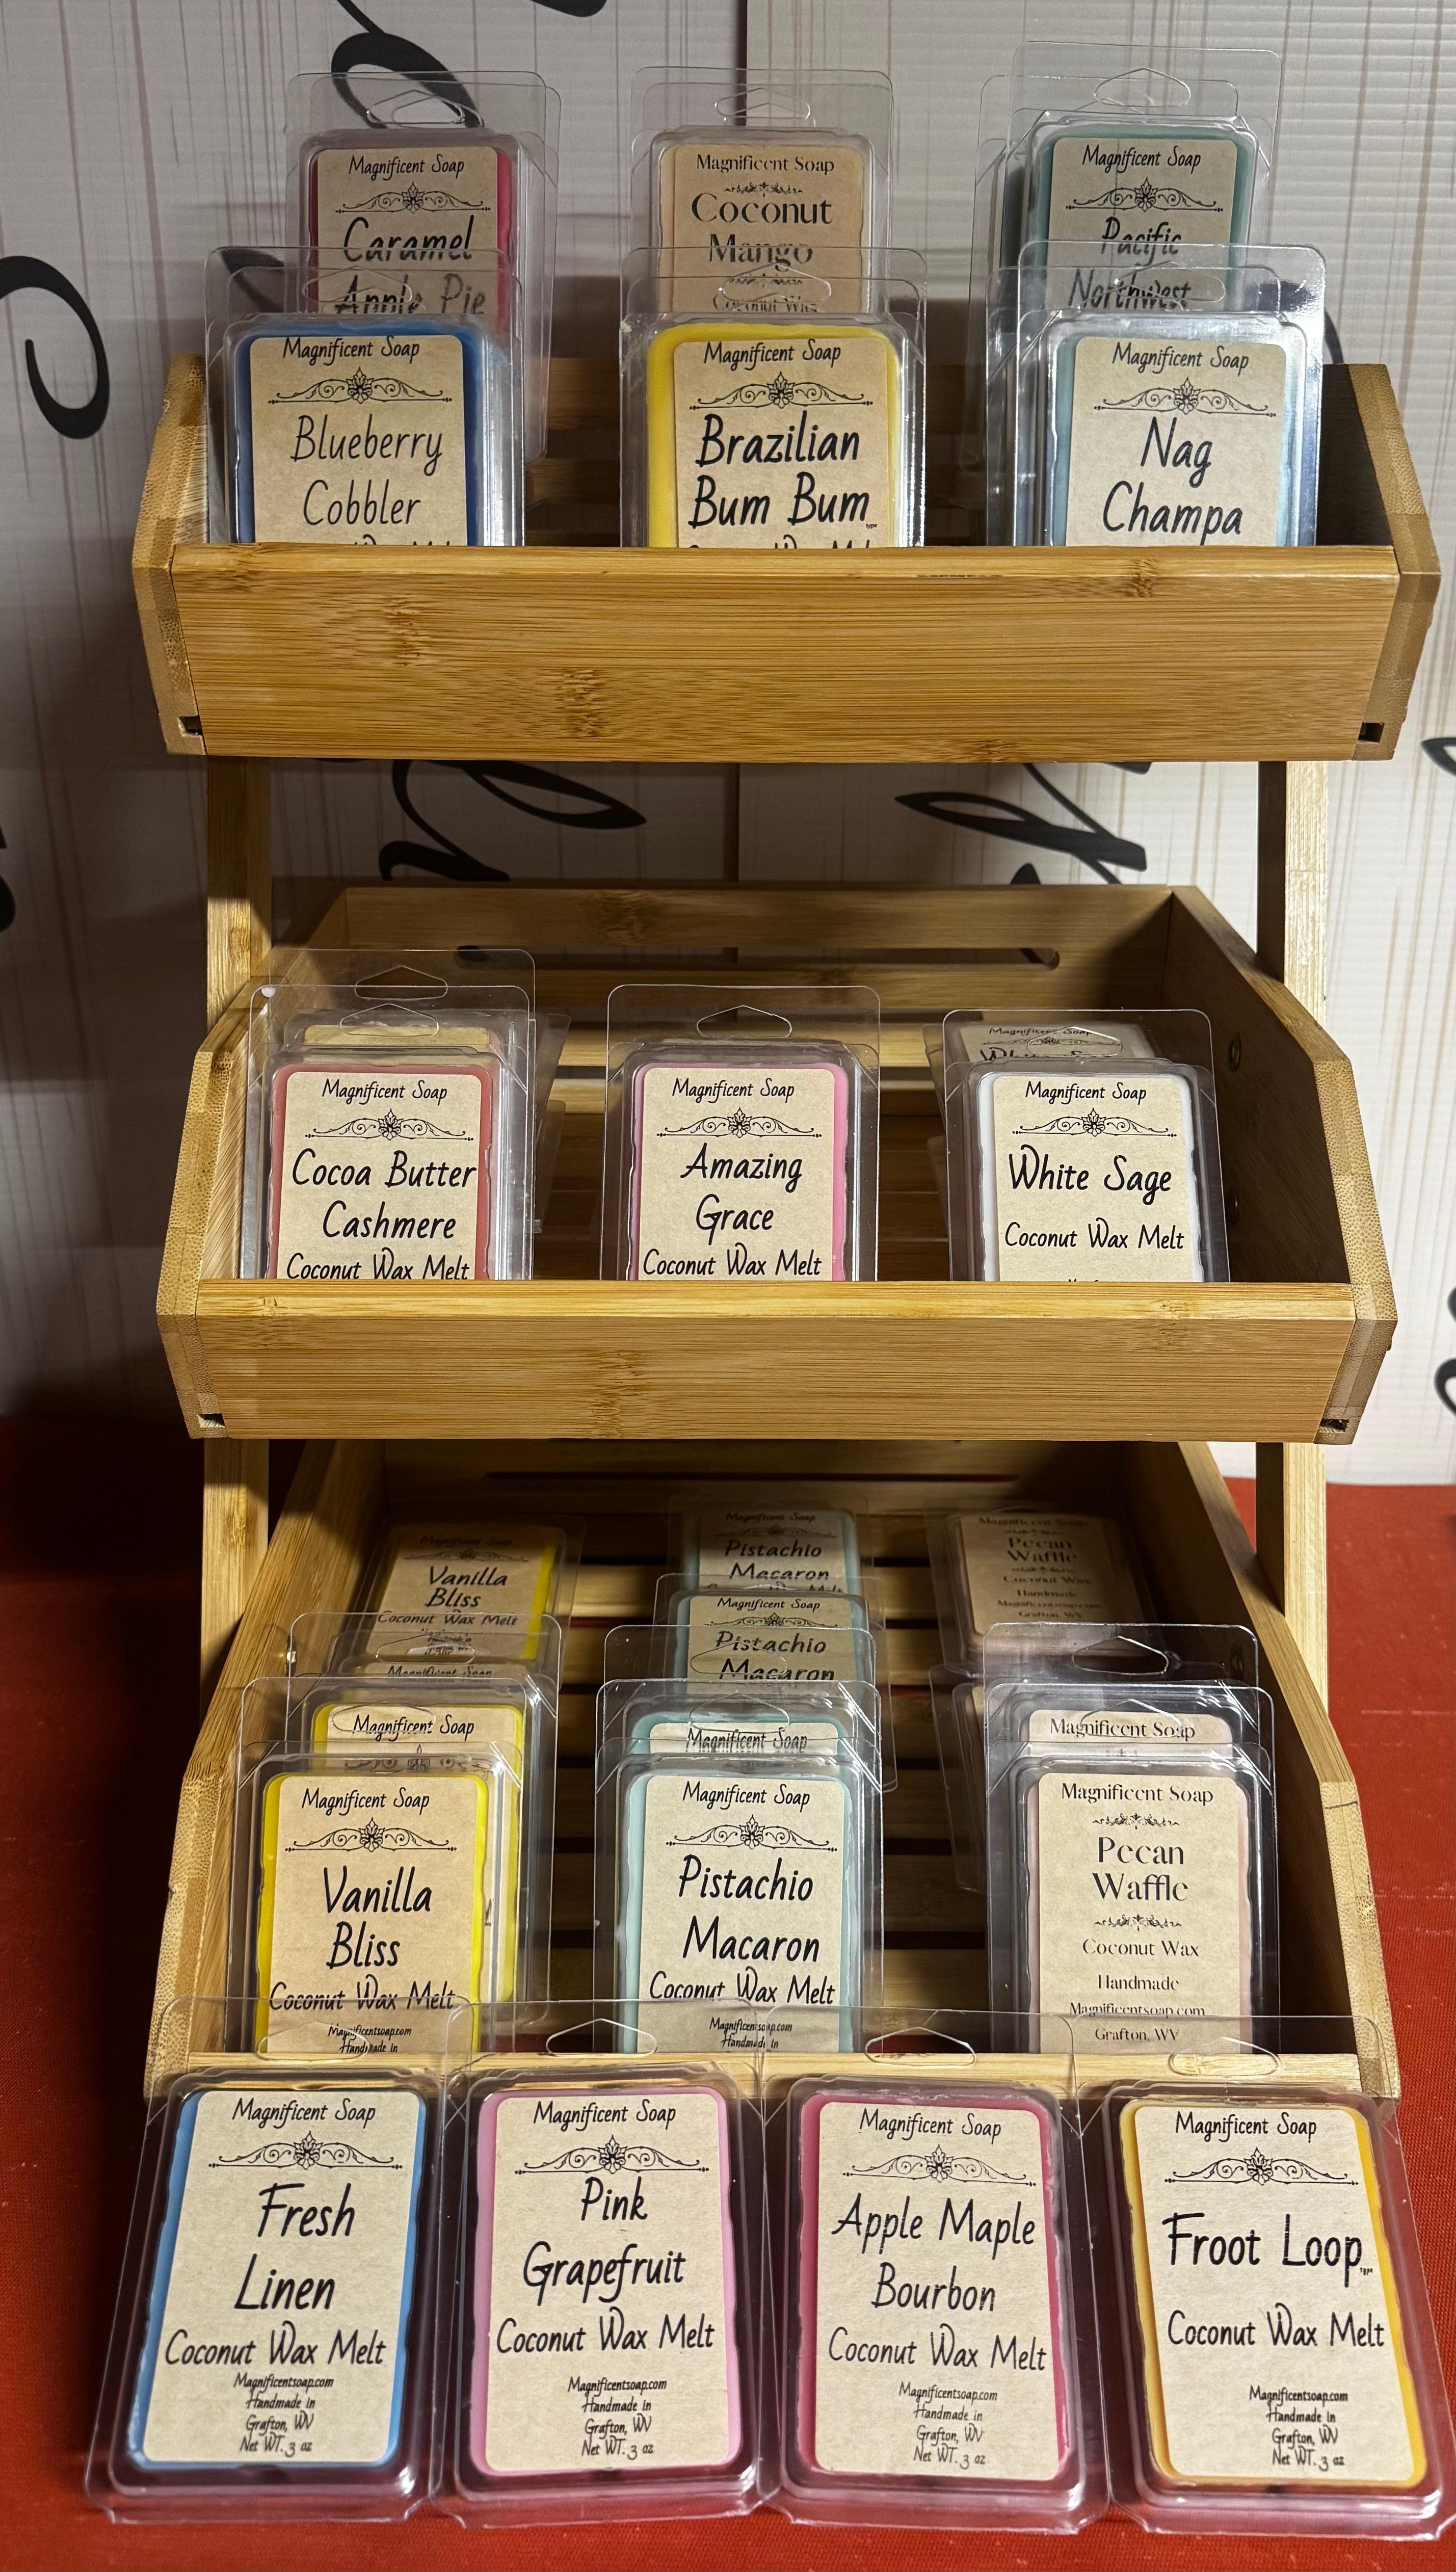 Magnificent Soap
Caramel
Apple Pie
Magnificent Soap
Coconut
Mango
Coconut Wax
Magnificent Soap
Pacific
Northwest
Magnificent Soap
Blueberry
Cobbler
Magnificent Soap
Brazilian
Bum Bum
type
Magnificent Soap
Nag
Champa
Magnificent Soap
Cocoa Butter
Cashmere
Coconut Wax Melt
Magnificent Soap
Amazing
Grace
Coconut Wax Melt
Magnificent Soap
White Sage
Magnificent Soap
White Sage
Coconut Wax Melt
Magnificent Soap
Vanilla
Bliss
Coconut Wax Melt
Magnificent Soap
Pistachio
Macaron
Magnificent Soap
Pistachio
Macaron
Magnificent Soap
Pecan
Waffle
Coconut Wax
Handmade
Magnificentsoap.com
Grafton, WV
Magnificent Soap
Magnificent Soap
Magnificent Soap
Magnificent Soap
Magnificent Soap
Vanilla
Bliss
Coconut Wax Melt
Magnificentsoap.com
Handmade in
Magnificent Soap
Pistachio
Macaron
Coconut Wax Melt
Magnificentsoap.com
Handmade in
Magnificent Soap
Pecan
Waffle
Coconut Wax
Handmade
Magnificentsoap.com
Grafton, WV
Magnificent Soap
Fresh
Linen
Coconut Wax Melt
Magnificentsoap.com
Handmade in
Grafton, WV
Net WT. 3 oz
Magnificent Soap
Pink
Grapefruit
Coconut Wax Melt
Magnificentsoap.com
Handmade in
Grafton, WV
Net WT. 3 oz
Magnificent Soap
Apple Maple
Bourbon
Coconut Wax Melt
Magnificentsoap.com
Handmade in
Grafton, WV
Net WT. 3 oz
Magnificent Soap
Froot Loop
type
Coconut Wax Melt
Magnificentsoap.com
Handmade in
Grafton, WV
Net WT. 3 oz